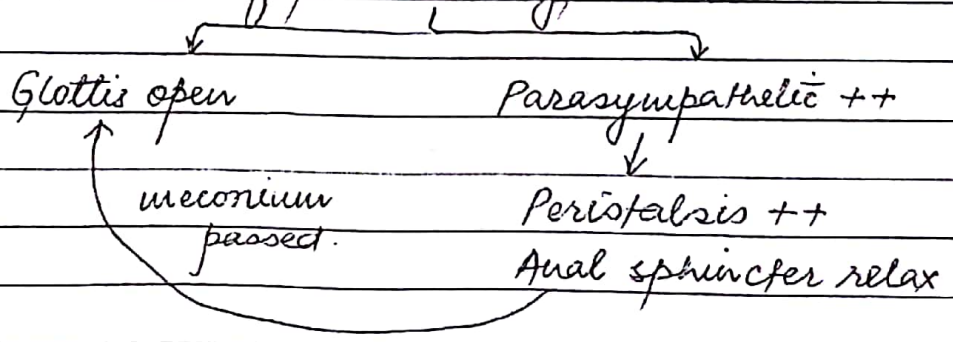 Glottis open Parasympathetic ++
meconium Peristalsis ++
passed.
Anal sphincter relax